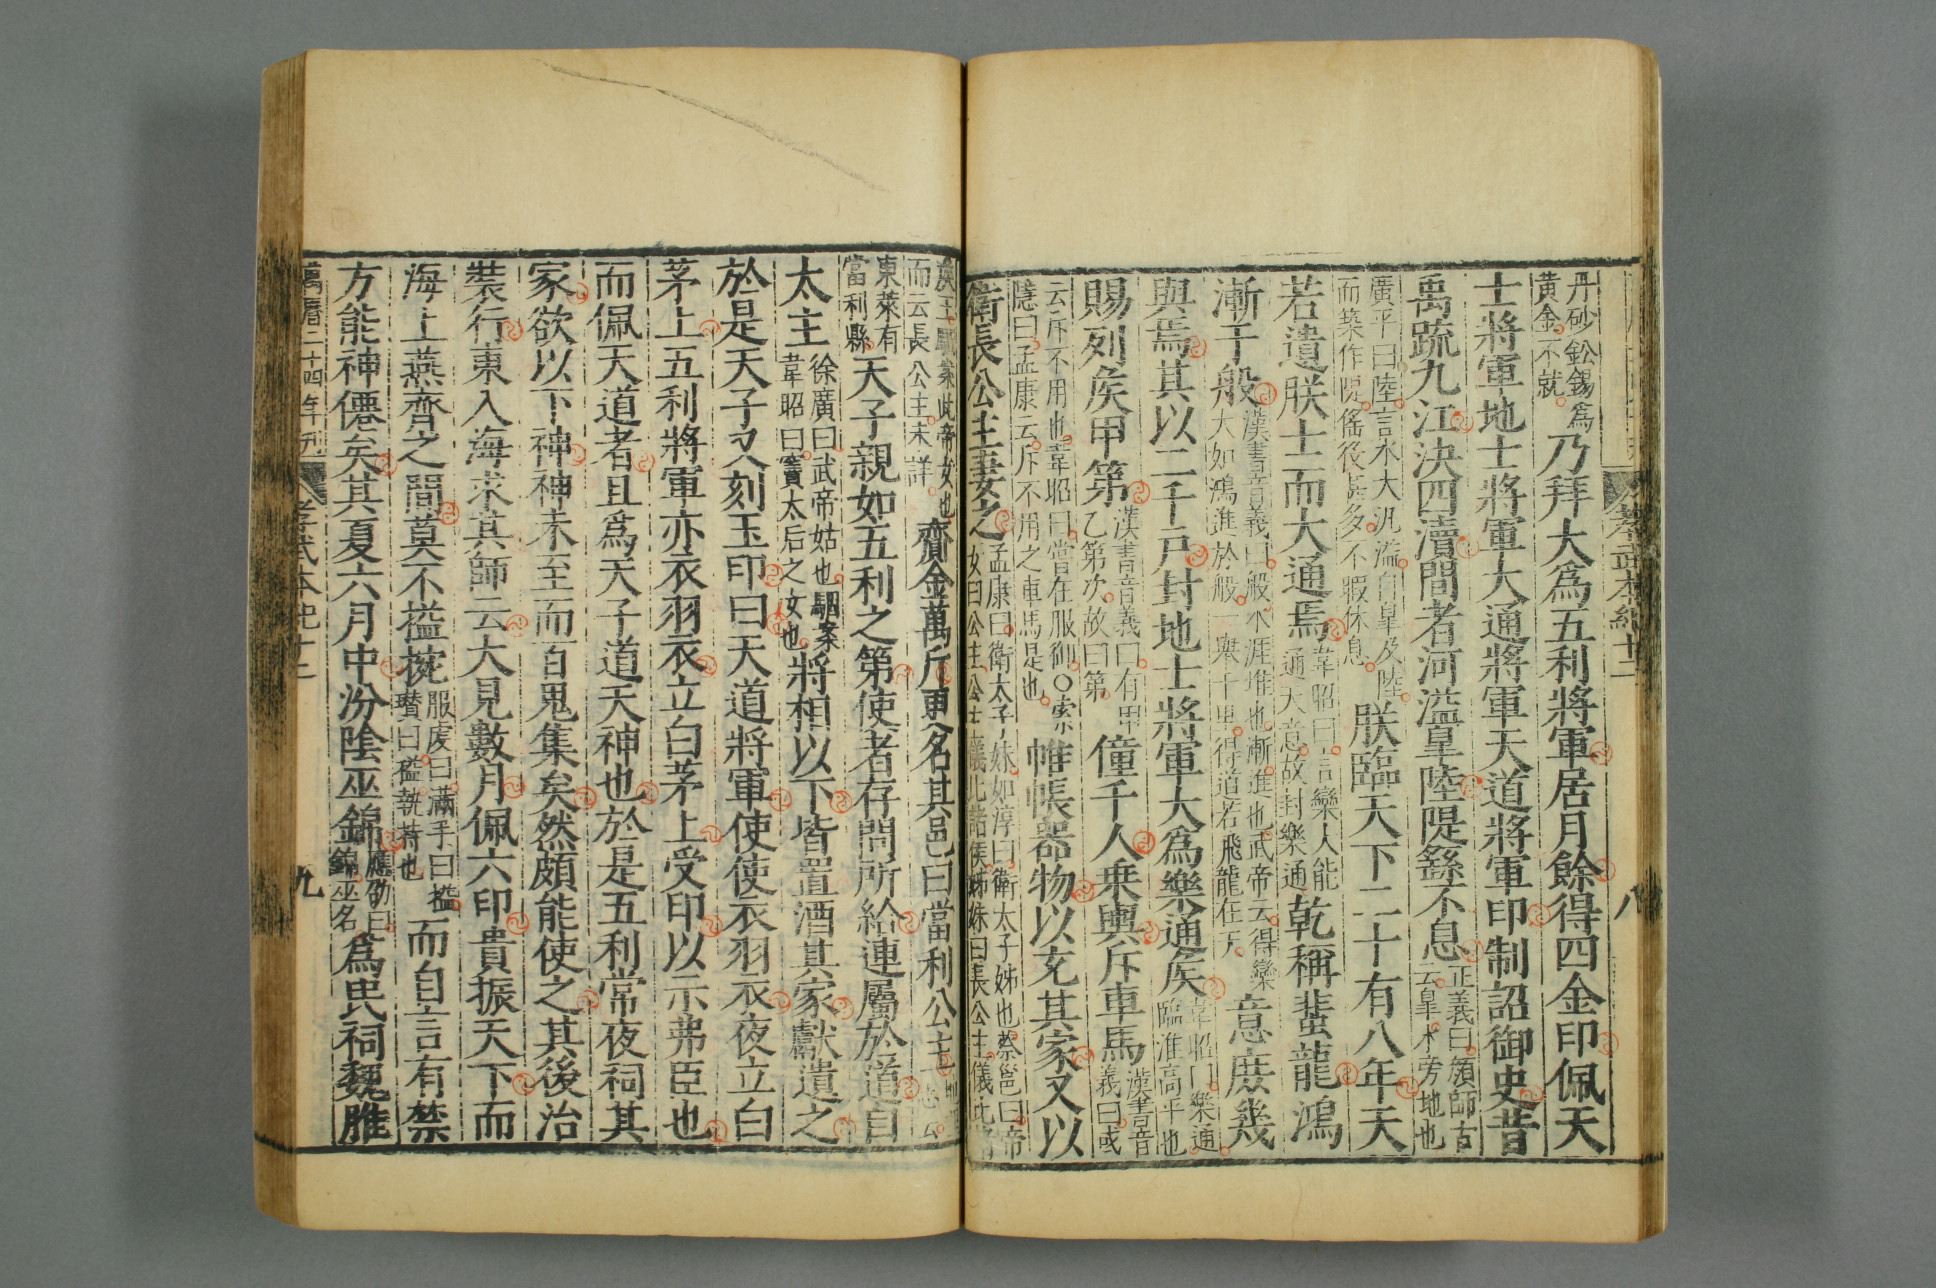 孝武本紀十二
八
丹砂鈆錫爲
黄金不就
乃拜大爲五利將軍居月餘得四金印佩天
士將軍地士將軍大通將軍天道將軍印制詔御史昔
禹疏九江決四瀆間者河溢臯陸隄繇不息
正義曰顔師古
云臯水旁地也
廣平曰陸言水大汎溢自臯及陸
而築作隄傜役甚多不暇休息
朕臨天下二十有八年天
若遺朕士而大通焉
韋昭曰言欒大能
通天意故封樂通
乾稱蜚龍鴻
漸于般
漢書音義曰般水涯堆也漸進也武帝云得欒
大如鴻進於般一舉千里得道若飛龍在天
意庶幾
與焉其以二千户封地士將軍大爲樂通矦
韋昭曰樂通
臨淮高平也
賜列矦甲第
漢書音義曰有甲
乙第次故曰第
僮千人乗輿斥車馬
漢書音
義曰或
云斥不用也韋昭曰嘗在服御○索
隱曰孟康云斥不用之車馬是也
帷帳器物以充其家又以
衛長公主妻之
孟康曰衛太子妹如淳曰衛太子姊也蔡邕曰帝
女曰公主公主儀比諸侯姊妹曰長公主儀比諸
矦王駰案此帝女也
而云長公主未詳
齎金萬斤更名其邑曰當利公主
地理
志云
東萊有
當利縣
天子親如五利之第使者存問所給連屬於道自
太主
徐廣曰武帝姑也駰案
韋昭曰竇太后之女也
將相以下皆置酒其家獻遺之
於是天子又刻玉印曰天道將軍使使衣羽衣夜立白
茅上五利將軍亦衣羽衣立白茅上受印以示弗臣也
而佩天道者且爲天子道天神也於是五利常夜祠其
家欲以下神神未至而百鬼集矣然頗能使之其後治
裝行東入海求其師云大見數月佩六印貴振天下而
海上燕齊之間莫不搤捥
服虔曰滿手曰搤
瓚曰搤執持也
而自言有禁
方能神僊矣其夏六月中汾陰巫錦
應劭曰
錦巫名
爲民祠魏脽
萬曆二十四年刊
孝武本紀十二
九